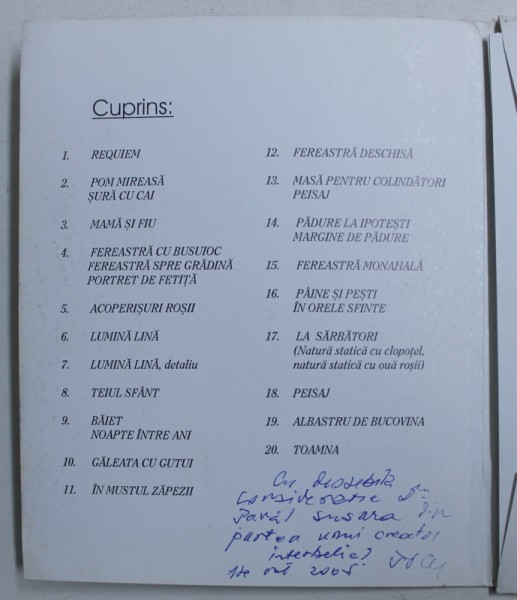 Cuprins:
1. REQUIEM
2. POM MIREASĂ
ȘURĂ CU CAI
3. MAMĂ ȘI FIU
4. FEREASTRĂ CU BUSUIOC
FEREASTRĂ SPRE GRĂDINĂ
PORTRET DE FETIȚĂ
5. ACOPERIȘURI ROȘII
6. LUMINĂ LINĂ
7. LUMINĂ LINĂ, detaliu
8. TEIUL SFÂNT
9. BĂIET
NOAPTE ÎNTRE ANI
10. GĂLEATA CU GUTUI
11. ÎN MUSTUL ZĂPEZII
12. FEREASTRĂ DESCHISĂ
13. MASĂ PENTRU COLINDĂTORI
PEISAJ
14. PĂDURE LA IPOTEȘTI
MARGINE DE PĂDURE
15. FEREASTRĂ MONAHALĂ
16. PÂINE ȘI PEȘTI
ÎN ORELE SFINTE
17. LA SĂRBĂTORI
(Natură statică cu clopoțel,
natură statică cu ouă roșii)
18. PEISAJ
19. ALBASTRU DE BUCOVINA
20. TOAMNA
Cu deosebită
considerație
Pavel Susara din
partea unui creator
interbelic
2005